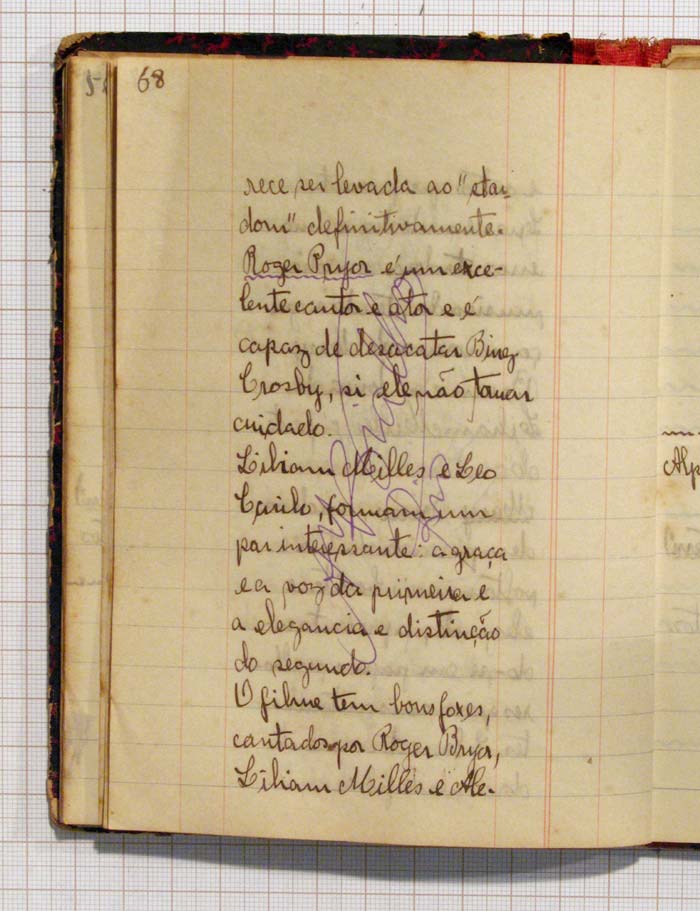 68
rece ser levada ao "star-
dom" definitivamente.
Roger Pryor é um exce-
lente cantor e ator e é
capaz de desacatar Bing
Crosby, si ele não tomar
cuidado.
Liliam Milles e Leo
Carilo, formam um
par interessante: a graça
e a voz da primeira e
a elegancia e distinção
do segundo.
O filme tem bons foxes,
cantados por Roger Bryor,
Liliam Milles e Ale-